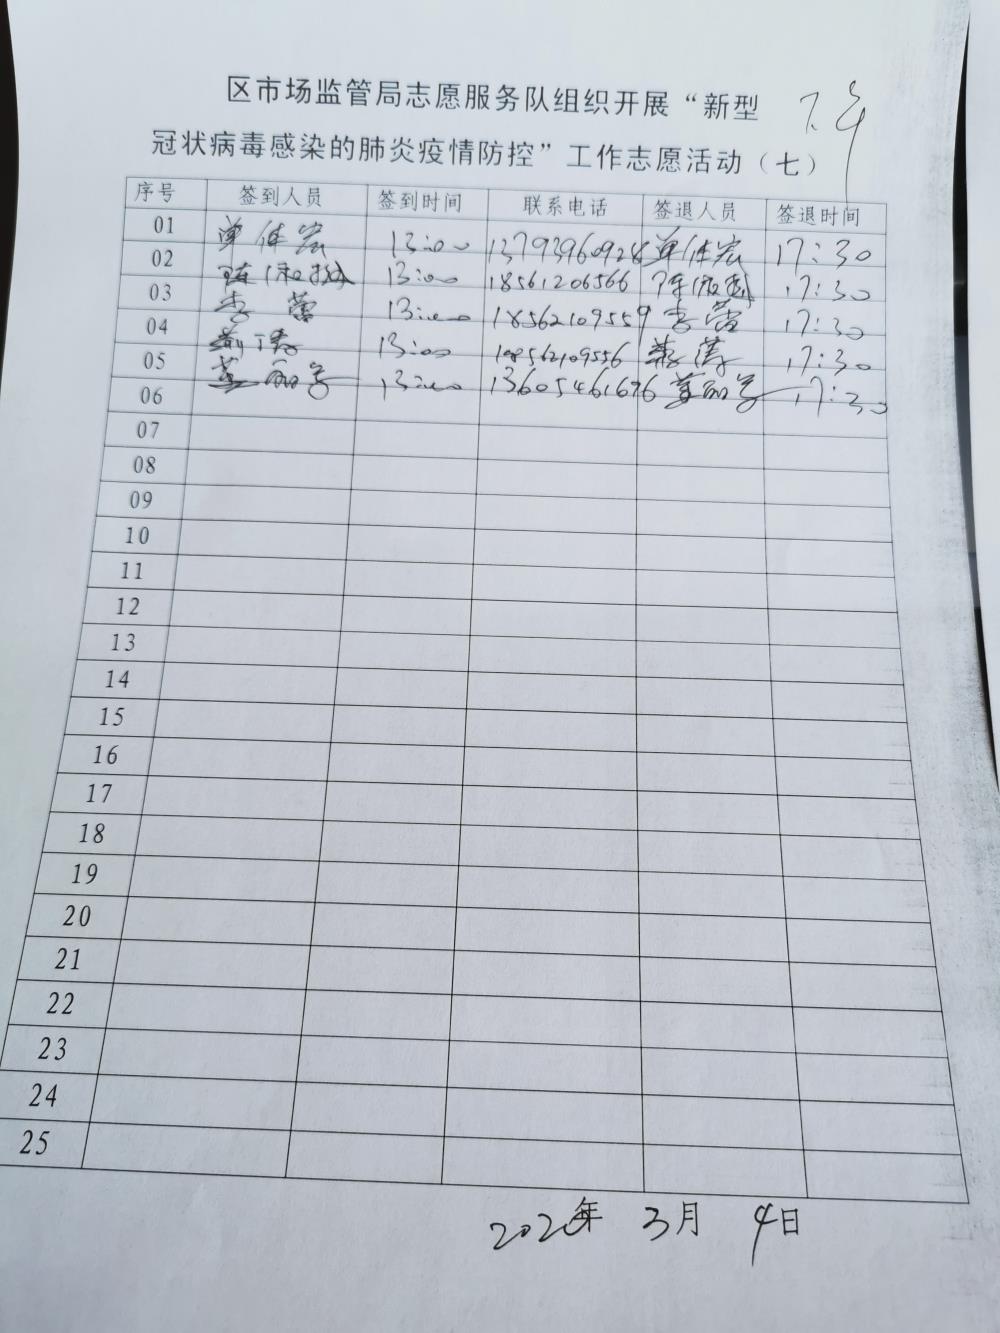 区市场监管局志愿服务队组织开展“新型
冠状病毒感染的肺炎疫情防控”工作志愿活动（七）
序号 签到人员 签到时间 联系电话 签退人员 签退时间
01 单体宏 13:00 13793960928 单体宏 17:30
02 13:00 18561206566 17:30
03 李蕾 13:00 18562109559 李蕾 17:30
04 13:00 18562109556 17:30
05 13:00 13605461676 17:30
06
07
08
09
10
11
12
13
14
15
16
17
18
19
20
21
22
23
24
25
2020年 3月 4日